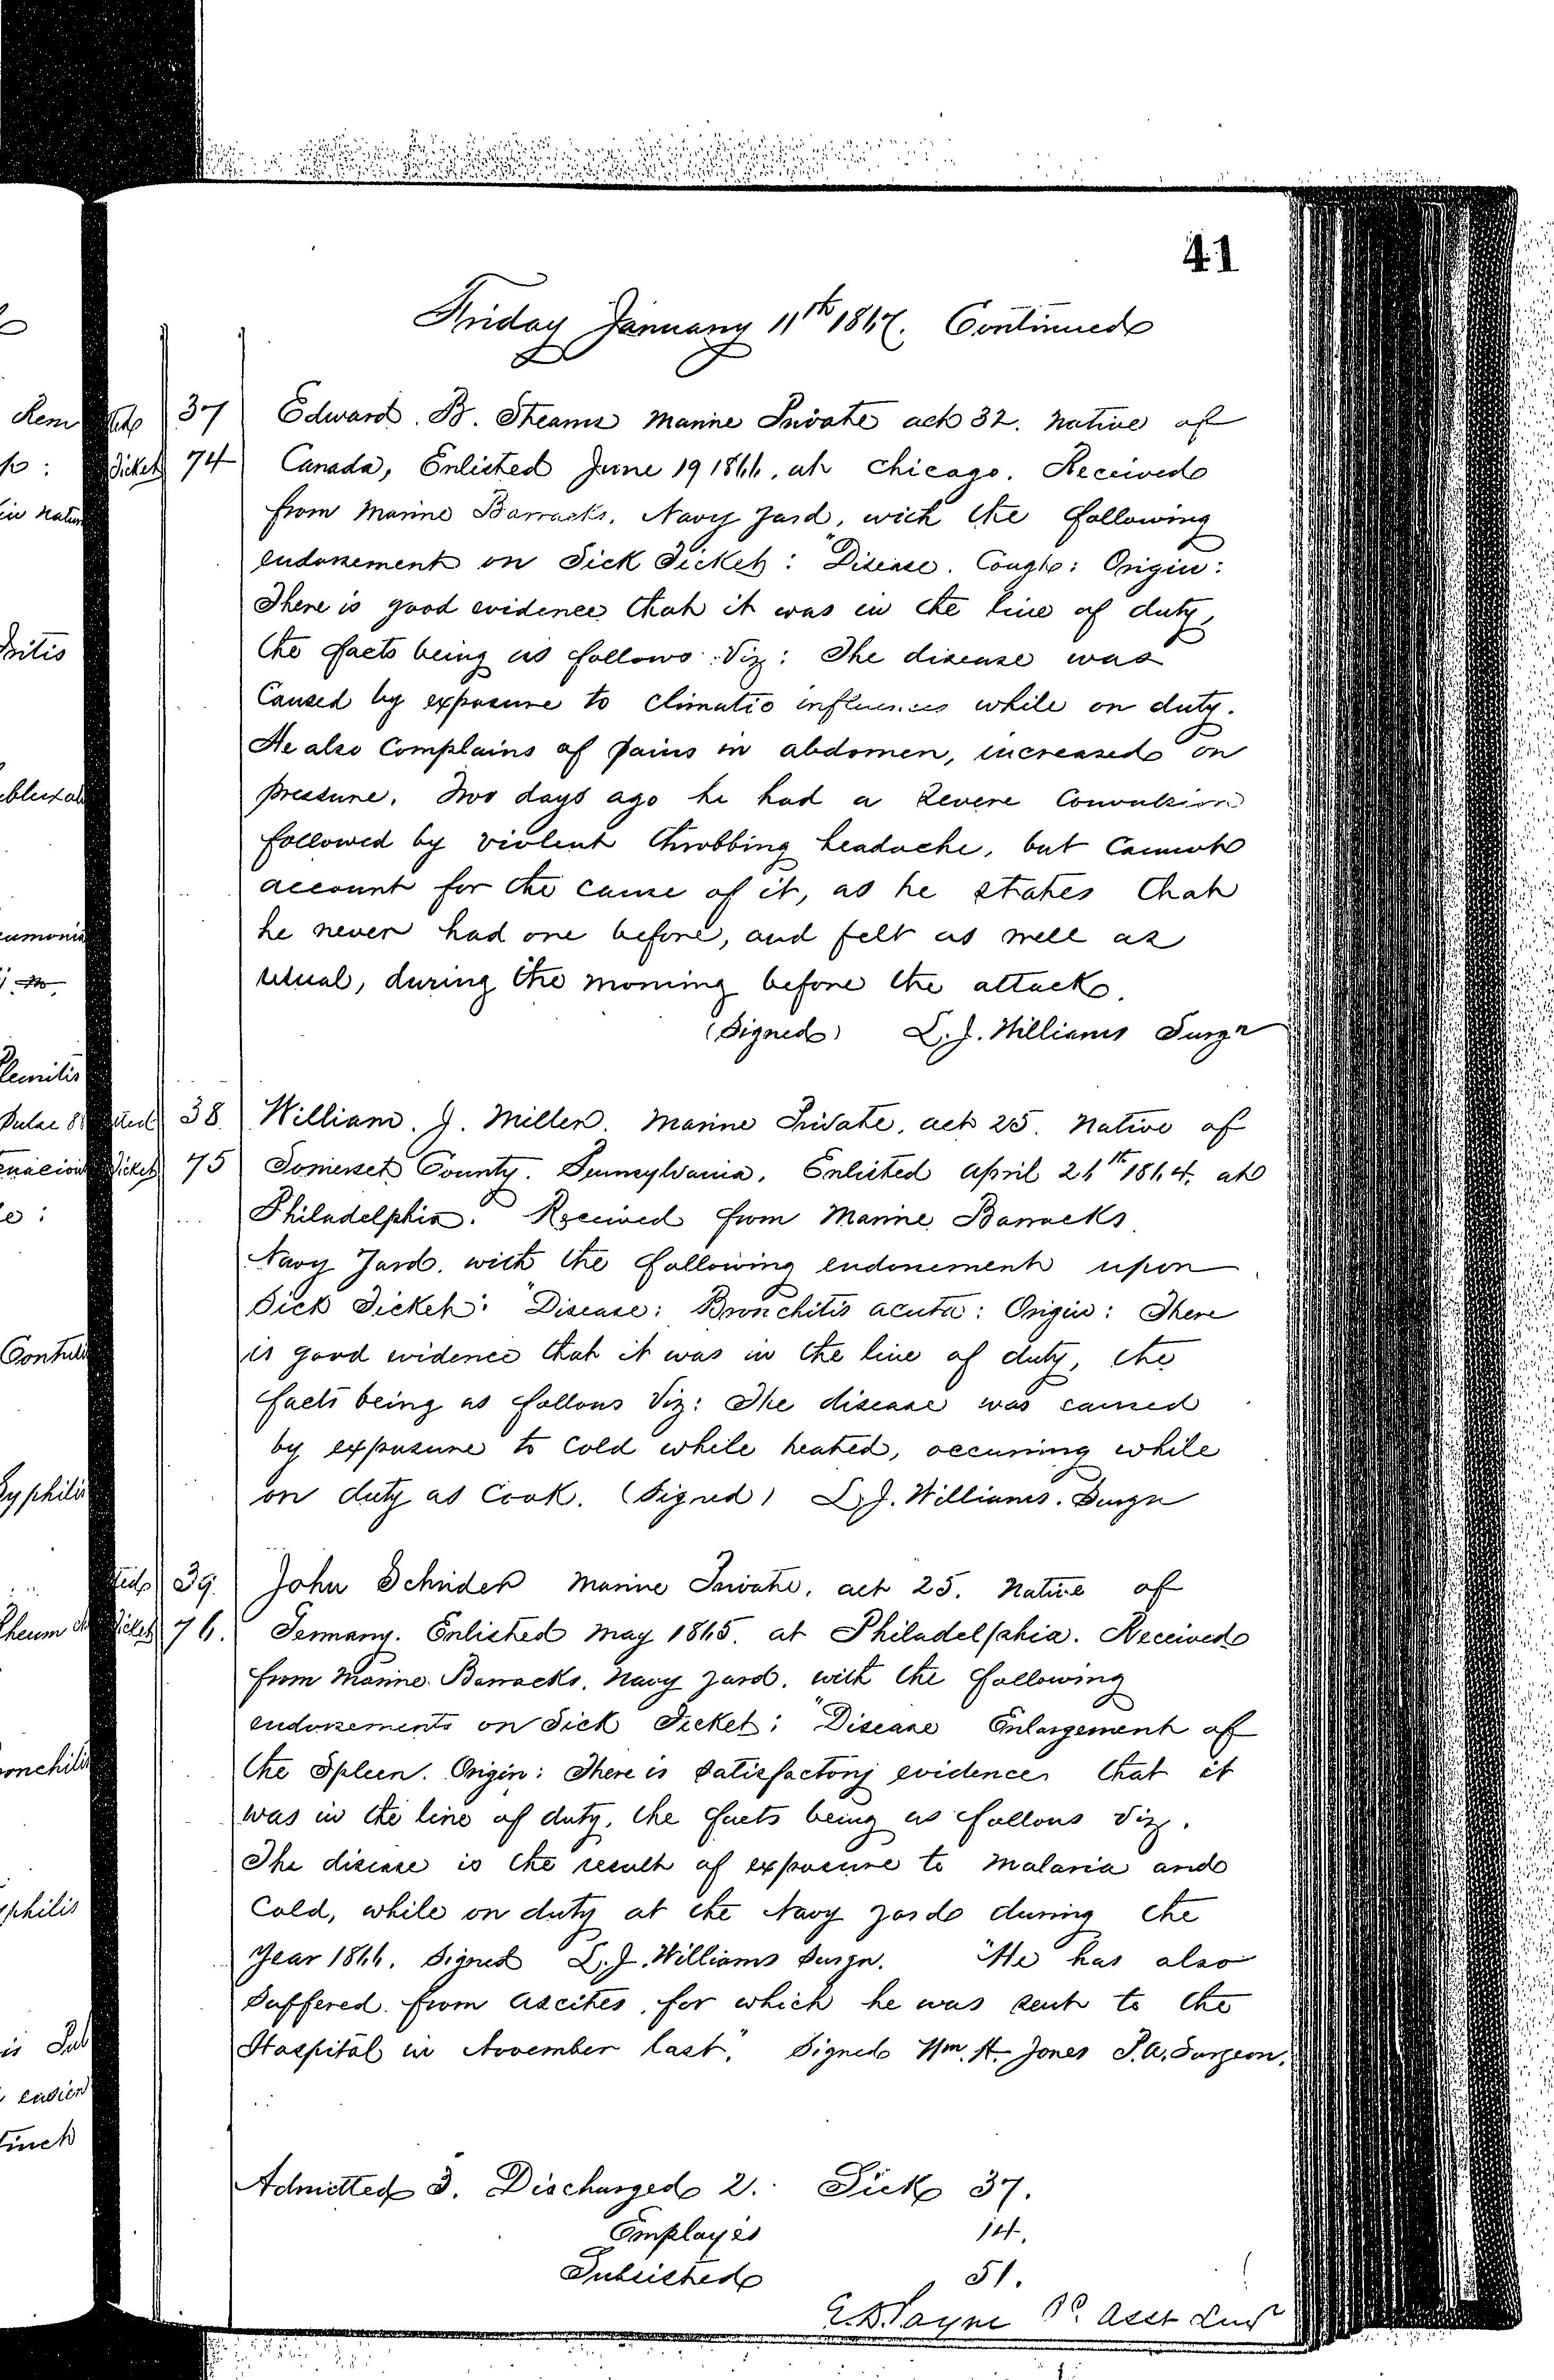 41
Friday January 11th 1867. Continued
37 Edward. B. Stearns Marine Private aet 32. Native of
Ticket 74 Canada, Enlisted June 19 1866. at Chicago. Received
from Marine Barracks, Navy Yard, with the following
endorsement on Sick Ticket: "Disease. Cough: Origin:
There is good evidence that it was in the line of duty,
the facts being as follows Viz: The disease was
Caused by exposure to climatic influences while on duty.
He also Complains of pains in abdomen, increased on
pressure. Two days ago he had a Severe Convulsion
followed by violent throbbing headache, but Cannot
account for the cause of it, as he states that
he never had one before, and felt as well as
usual, during the morning before the attack.
(Signed) L. J. Williams Surgn
38 William. J. Miller. Marine Private, aet 25. Native of
Ticket 75 Somerset County. Pennsylvania. Enlisted April 26th 1864. at
Philadelphia. Received from Marine Barracks
Navy Yard. with the following endorsement upon
Sick Ticket: "Disease: Bronchitis acuta: Origin: There
is good evidence that it was in the line of duty, the
facts being as follows Viz: The disease was caused
by exposure to Cold while heated, occurring while
on duty as Cook. (Signed) L. J. Williams. Surgn
39. John Schrider Marine Private, aet 25. Native of
Ticket 76. Germany. Enlisted May 1865. at Philadelphia. Received
from Marine Barracks, Navy Yard, with the following
endorsements on Sick Ticket: "Disease Enlargement of
the Spleen. Origin: There is Satisfactory evidence that it
was in the line of duty, the facts being as follows Viz.
The disease is the result of exposure to Malaria and
Cold, while on duty at the Navy Yard during the
Year 1866. Signed L. J. Williams Surgn. "He has also
Suffered from Ascites, for which he was sent to the
Hospital in November last." Signed Wm. H. Jones P.A. Surgeon.
Admitted 3. Discharged 2. Sick 37.
Employés 14.
Subsisted 51.
E. D. Payne Pd. Asst Sur